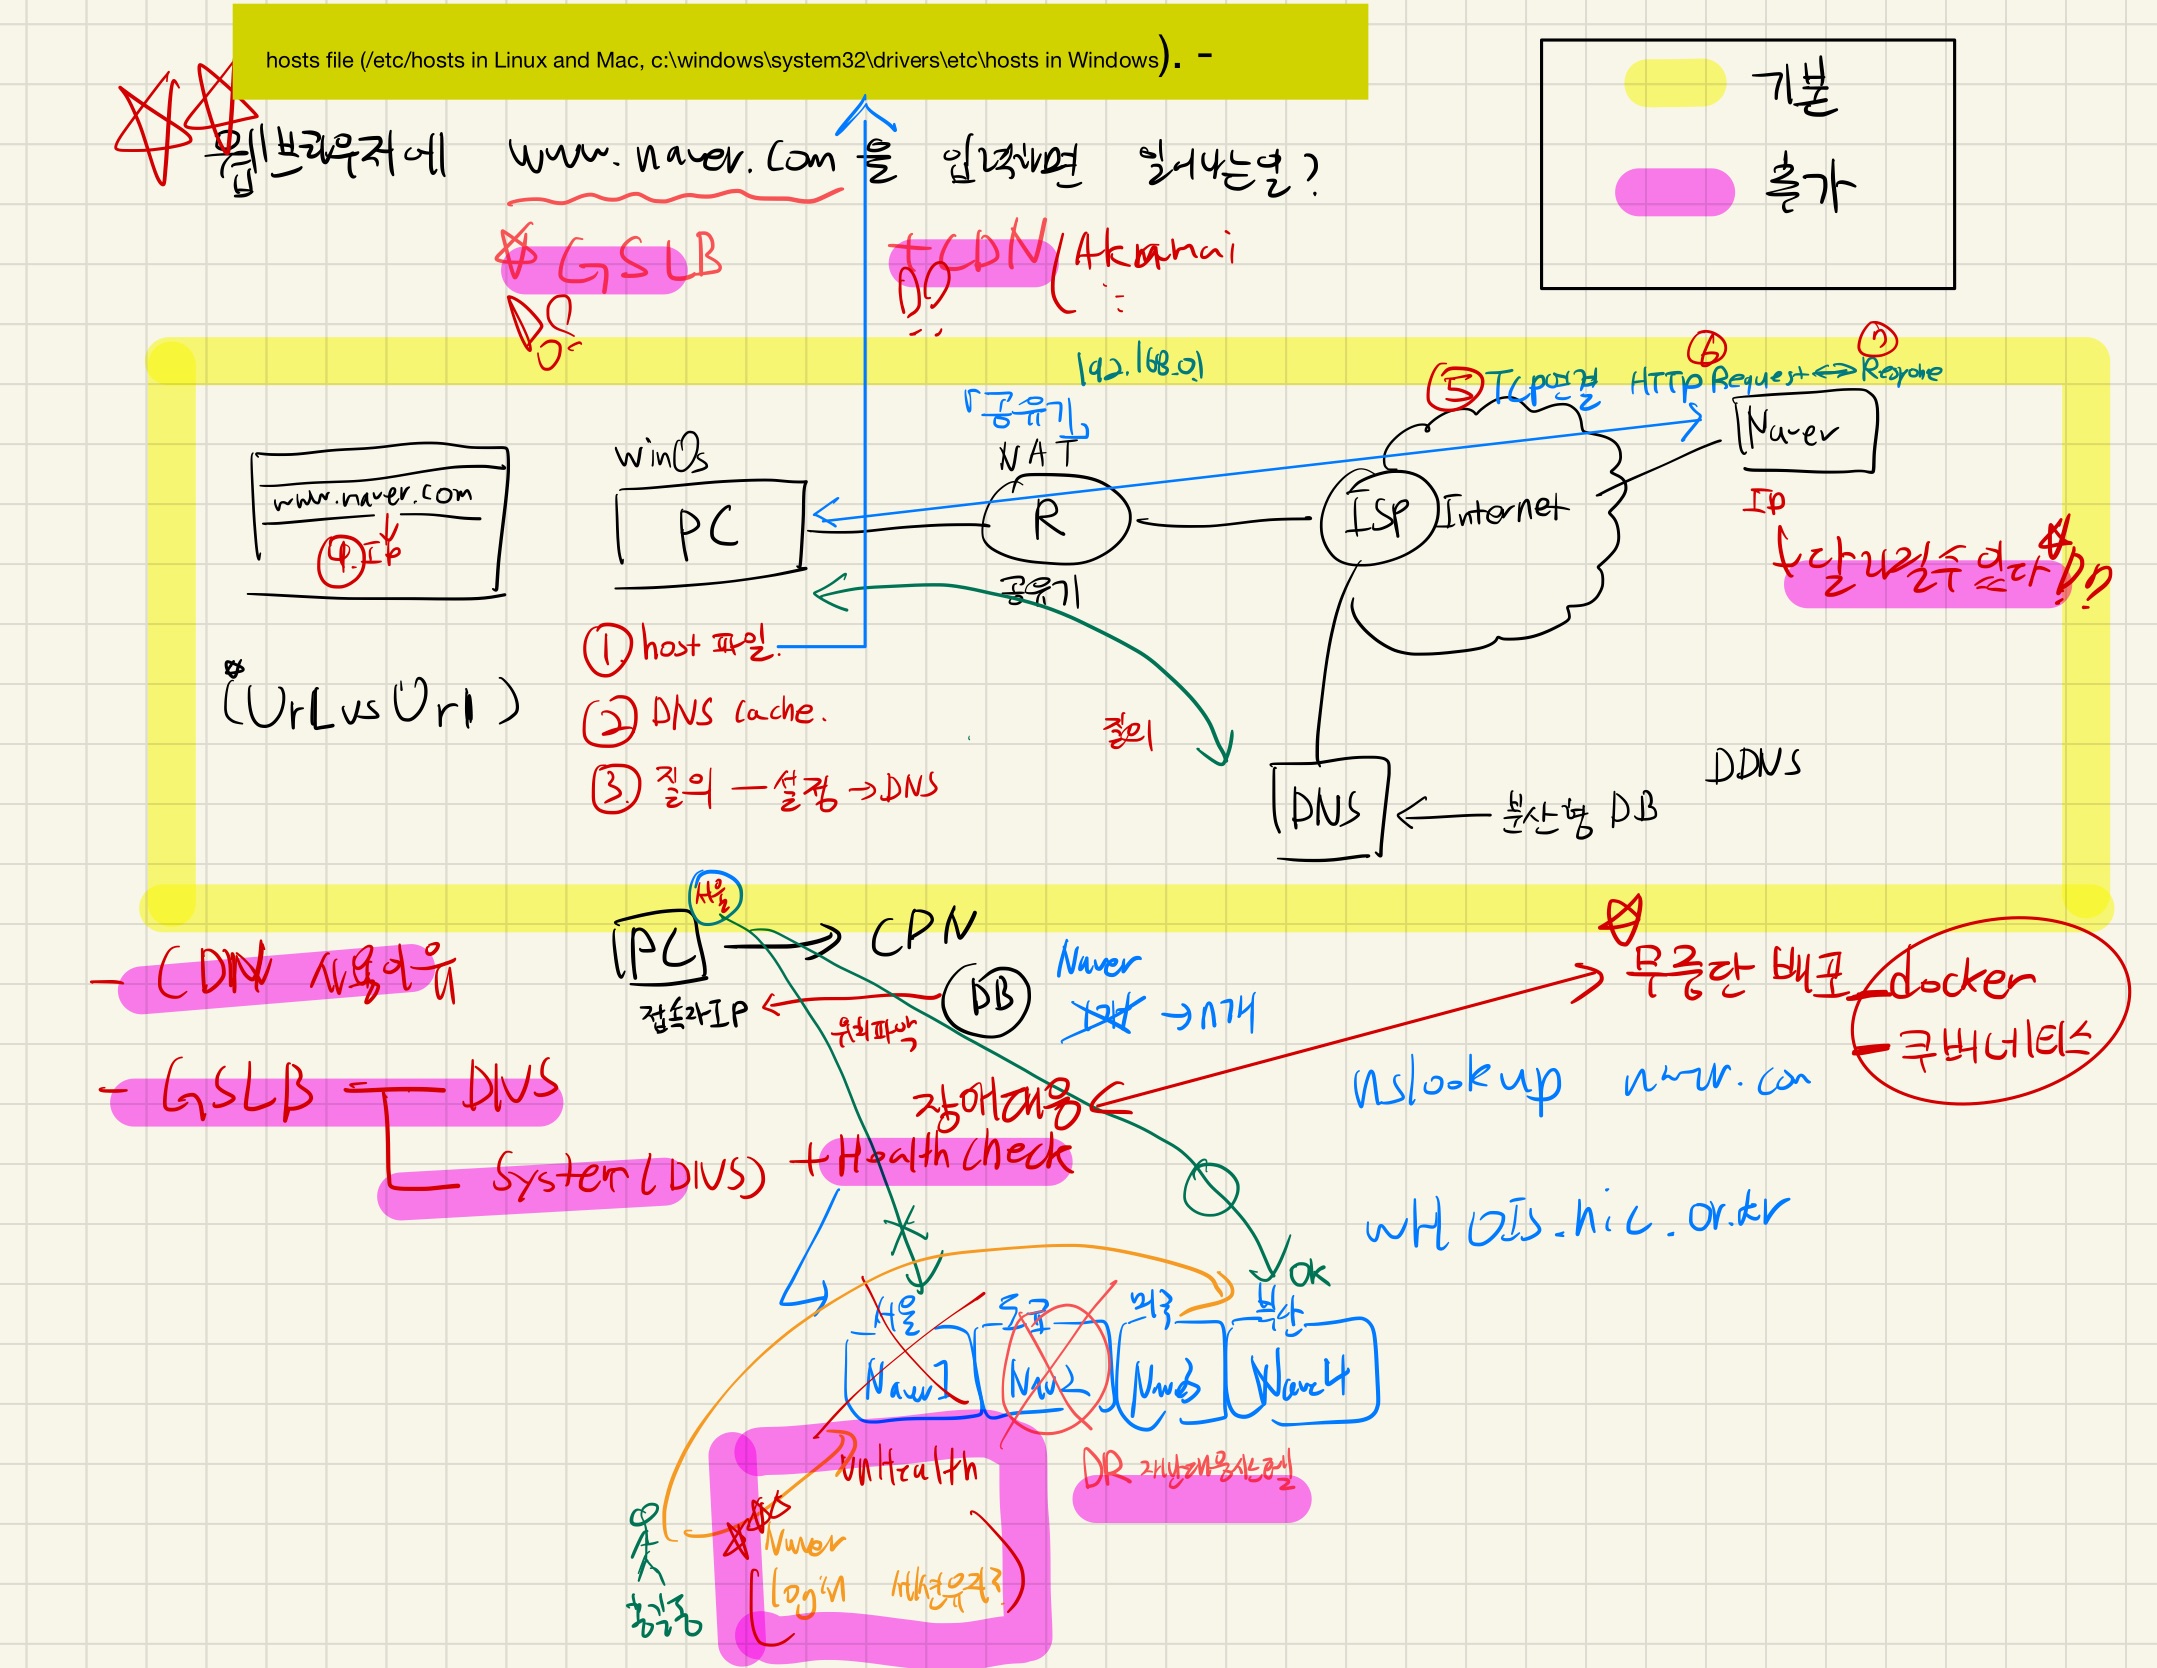 hosts file (/etc/hosts in Linux and Mac, c:\windows\system32\drivers\etc\hosts in Windows). -
기본
추가
웹브라우저에 www.naver.com 을 입력하면 일어나는일?
GSLB
+CDN (Akamai
192.168.01
⑤ TCP연결
⑥ ⑦
HTTP Request ↔ Response
「공유기」
NAT
R
공유기
winOs
PC
www.naver.com
④. IP
ISP
Internet
Naver
IP
달라질수 있다
① host 파일.
② DNS cache.
③ 질의 — 설정 → DNS
(UrL vs UrI)
질의
DNS
← 분산형 DB
DDNS
서울
PC
→ CPN
DB
위치파악
Naver
→ n개
- CDN 사용이유
- GSLB — DNS
System (DNS) + Health check
장애대응
무중단 배포 - docker
- 쿠버네티스
nslookup
wHOIs.nic.or.kr
OK
서울
미국
부산
Naver1
Nav2
Nave4
UnHealth
DR
Naver
login 세션유지?
홍길동